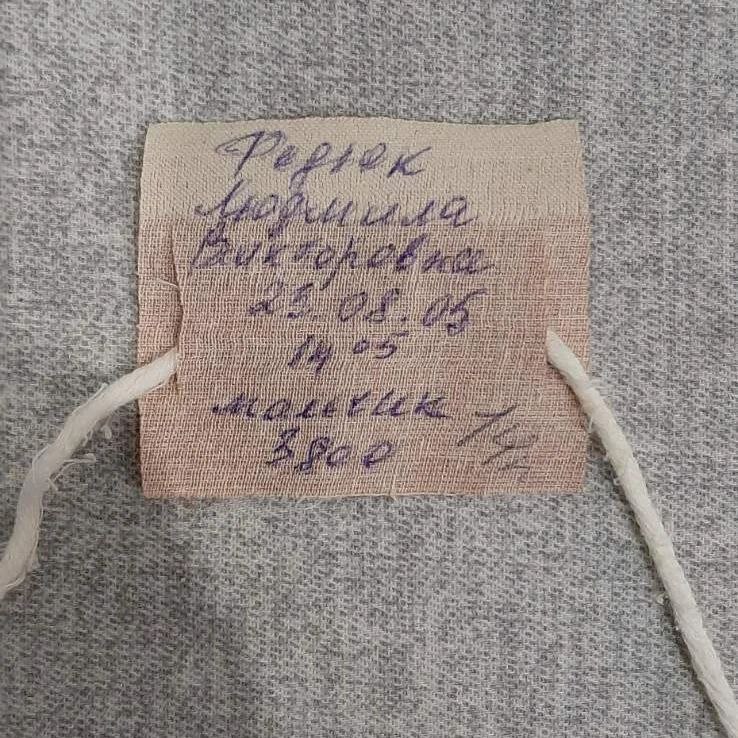 Редюк
Людмила
Викторовна
23.08.05
14 05
мальчик
3800